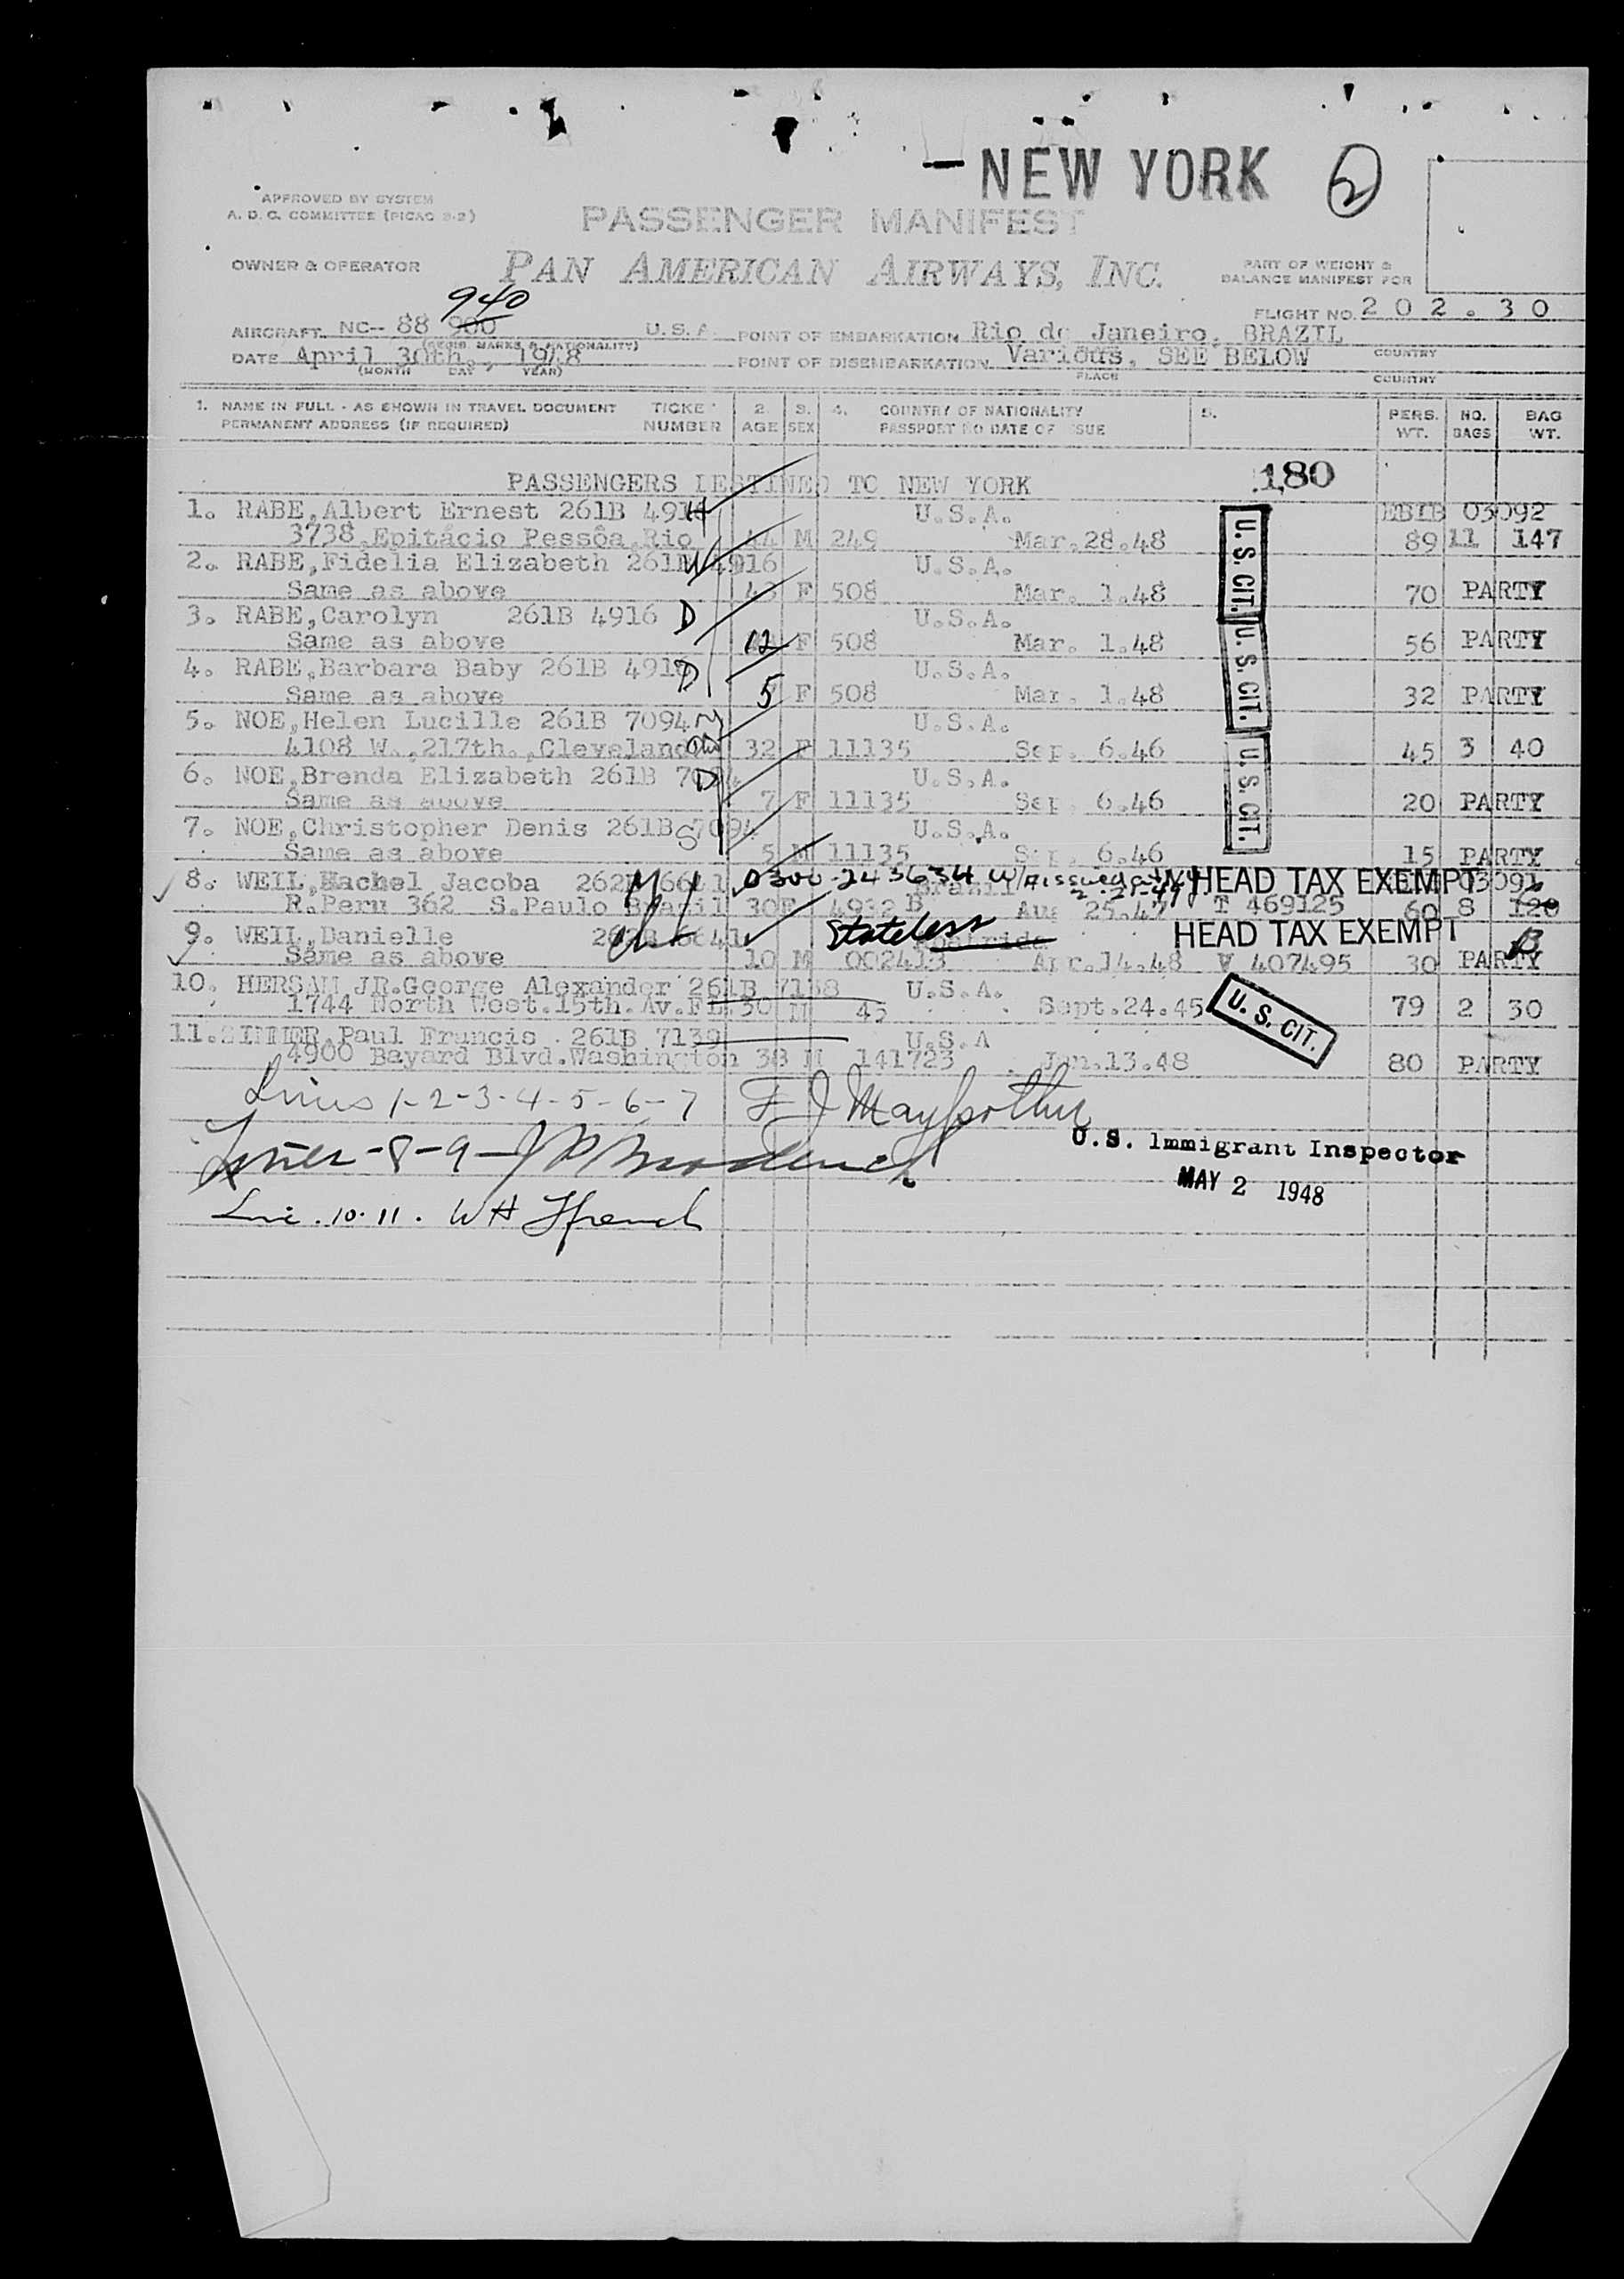 - NEW YORK 2
APPROVED BY SYSTEM
A. D. C. COMMITTEE (PICAO 2-2)
PASSENGER MANIFEST
OWNER & OPERATOR PAN AMERICAN AIRWAYS, INC.
PART OF WEIGHT &
BALANCE MANIFEST FOR
FLIGHT NO. 202.30
940
AIRCRAFT NC-- 88 900 U.S.A. POINT OF EMBARKATION Rio de Janeiro, BRAZIL
(REGIS. MARKS & NATIONALITY) COUNTRY
DATE April 30th., 1948 POINT OF DISEMBARKATION Various, SEE BELOW
(MONTH DAY YEAR) PLACE COUNTRY
1. NAME IN FULL - AS SHOWN IN TRAVEL DOCUMENT TICKET 2. 3. 4. COUNTRY OF NATIONALITY 5. PERS. NO. BAG
PERMANENT ADDRESS (IF REQUIRED) NUMBER AGE SEX PASSPORT NO DATE OF ISSUE WT. BAGS WT.
PASSENGERS DESTINED TO NEW YORK 180
1. RABE,Albert Ernest 261B 491 U.S.A. EBIB 03092
3738,Epitácio Pessôa,Rio 44 M 249 Mar.28.48 89 11 147
2. RABE,Fidelia Elizabeth 261B 4916 U.S.A.
Same as above 43 F 508 Mar. 1.48 70 PARTY
3. RABE,Carolyn 261B 4916 D U.S.A.
Same as above 12 F 508 Mar. 1.48 56 PARTY
4. RABE,Barbara Baby 261B 491 D U.S.A.
Same as above 5 F 508 Mar. 1.48 32 PARTY
5. NOE,Helen Lucille 261B 7094 U.S.A.
4108 W.,217th.,Cleveland 32 F 11135 Sep. 6.46 45 3 40
6. NOE,Brenda Elizabeth 261B 7094 D U.S.A.
Same as above 7 F 11135 Sep. 6.46 20 PARTY
7. NOE,Christopher Denis 261B 7094 S U.S.A.
Same as above 5 M 11135 Sep. 6.46 15 PARTY
U.S. CIT.
U.S. CIT.
U.S. CIT.
8. WEIL,Rachel Jacoba 262B 6641 0300-243634 Brazil HEAD TAX EXEMPT 03091
R.Peru 362 S.Paulo Brazil 30 F 4932 B Aug 25.47 T 469125 60 8 120
9. WEIL,Danielle 262B 6641 Stateless Apatride HEAD TAX EXEMPT
Same as above 10 M 002413 Apr.14.48 V 407495 30 PARTY
10. HERSAM JR.George Alexander 261B 7138 U.S.A.
1744 North West.15th.Av.FL. 30 M 45 Sept.24.45 U. S. CIT. 79 2 30
11. Paul Francis 261B 7139 U.S.A
4900 Bayard Blvd.Washington 38 M 141723 Jan.13.48 80 PARTY
Lines 1-2-3-4-5-6-7 F J
U.S. Immigrant Inspector
Lines-8-9-
MAY 2 1948
Line.10.11. W H French